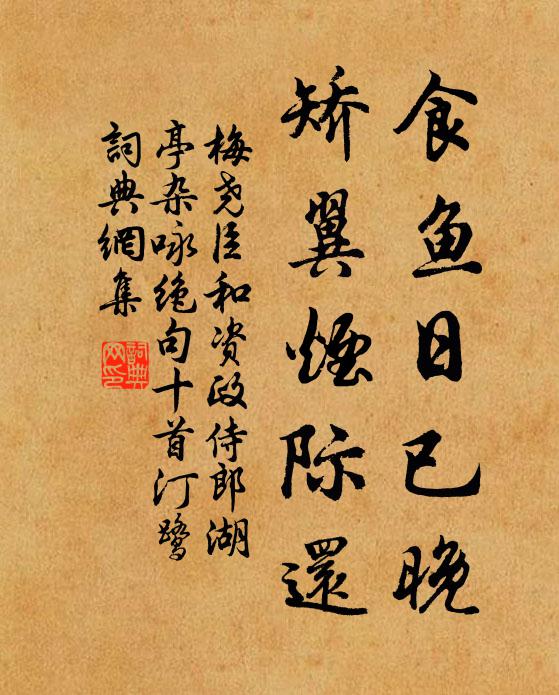 食鱼日已晚
矫翼烟际還
梅尧臣和资政侍郎湖
亭杂咏绝句十首汀鹭
詞典網集
詞典
网印